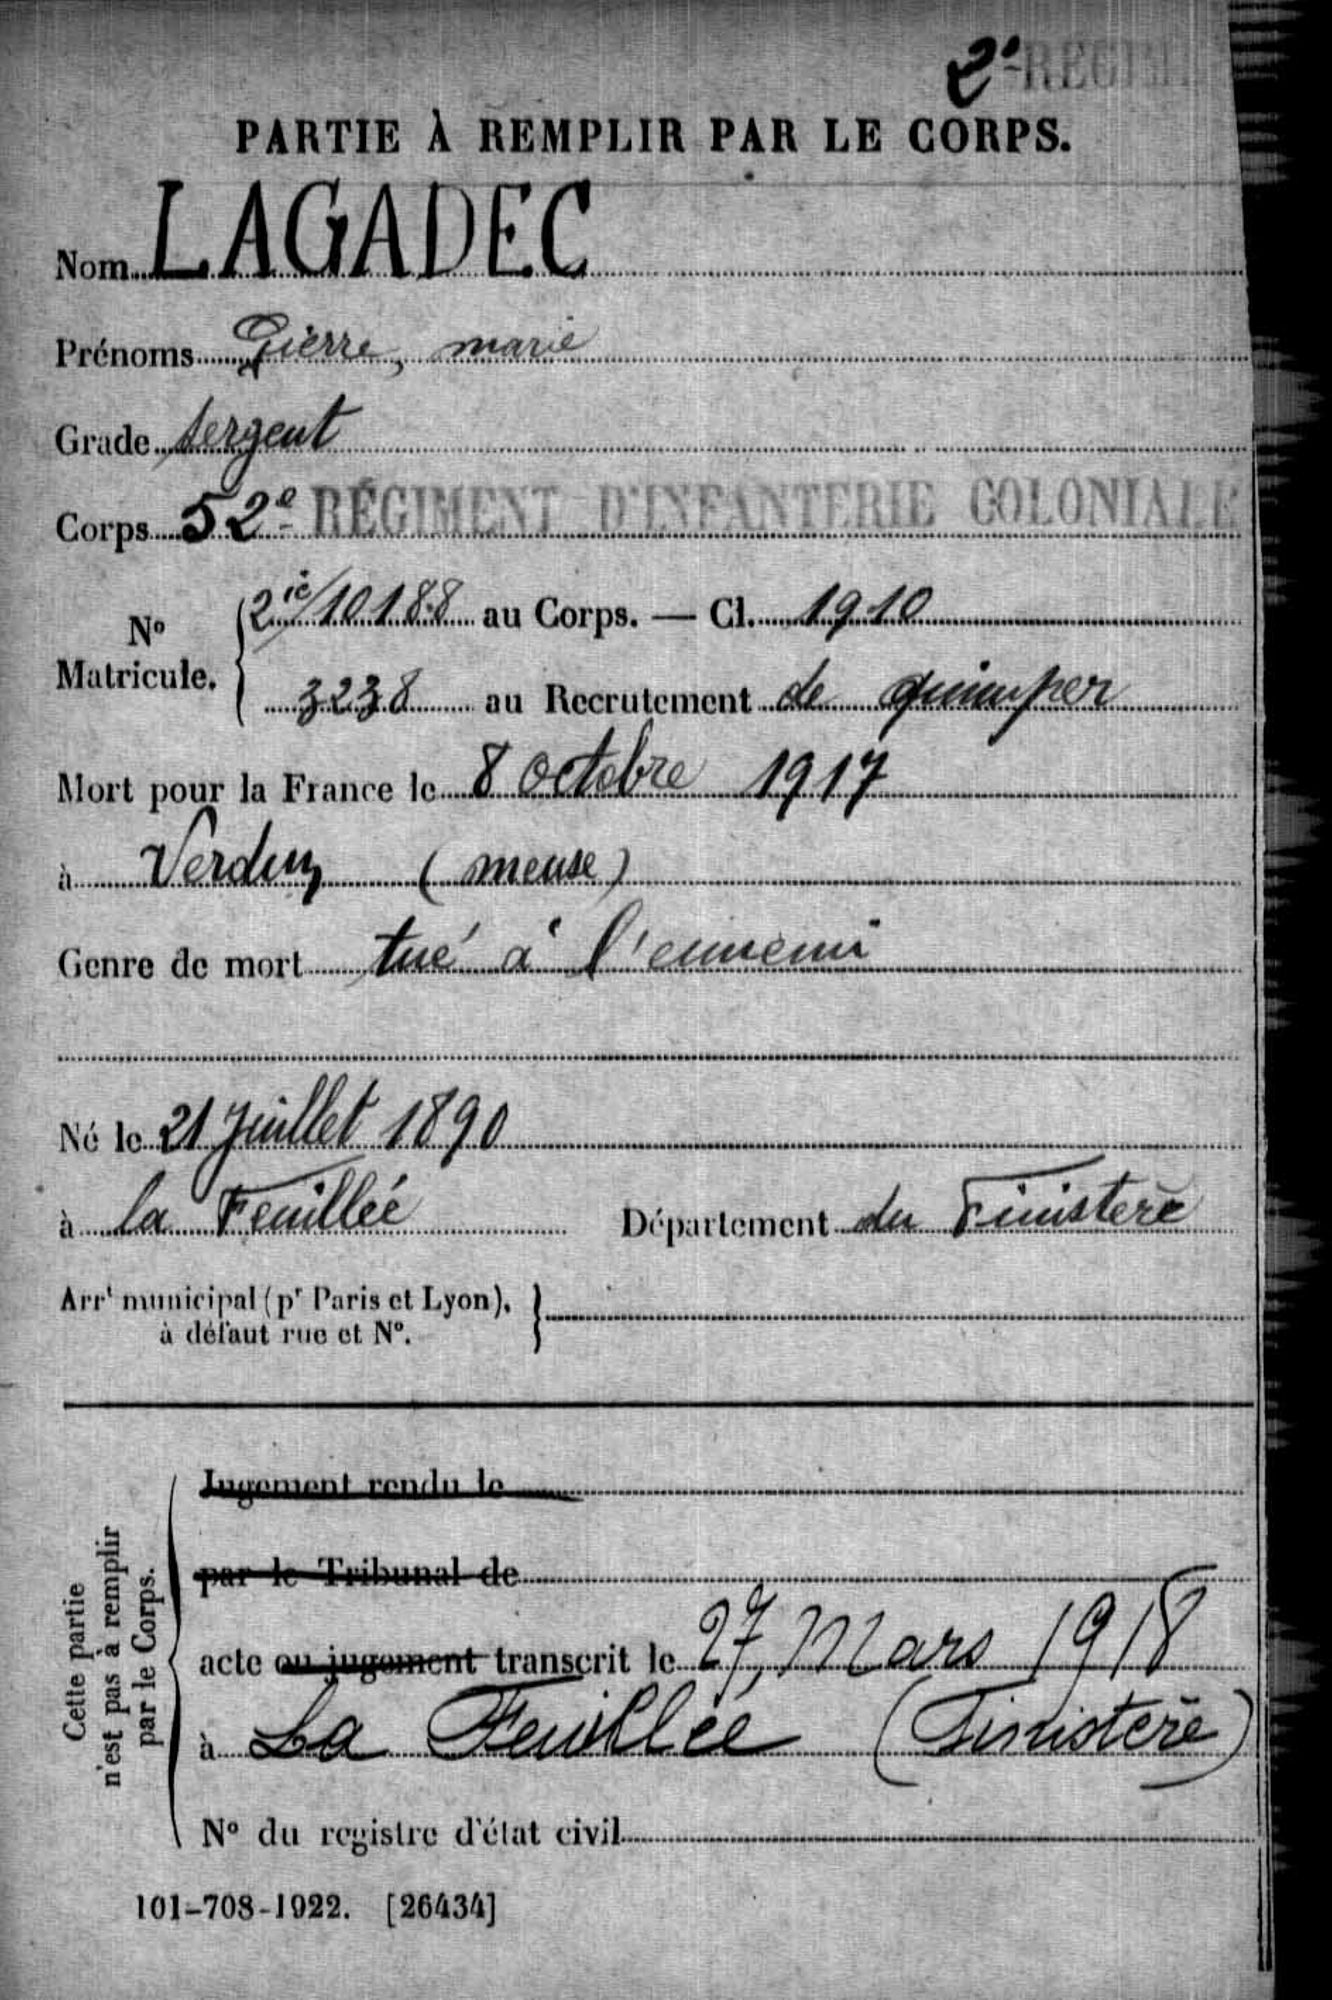 2e REGIM
PARTIE À REMPLIR PAR LE CORPS.
Nom LAGADEC
Prénoms Pierre, marie
Grade sergent
Corps 52e RÉGIMENT D'INFANTERIE COLONIALE
N° Matricule. 2ic/10188 au Corps. — Cl. 1910
3238 au Recrutement de quimper
Mort pour la France le 8 octobre 1917
à Verdun (meuse)
Genre de mort tué à l'ennemi
Né le 21 Juillet 1890
à la Feuillée Département du Finistère
Arrt municipal (pr Paris et Lyon),
à défaut rue et N°.
Cette partie
n'est pas à remplir
par le Corps.
Jugement rendu le
par le Tribunal de
acte ou jugement transcrit le 27, Mars 1918
à La Feuillée (Finistère)
N° du registre d'état civil
101-708-1922. [26434]